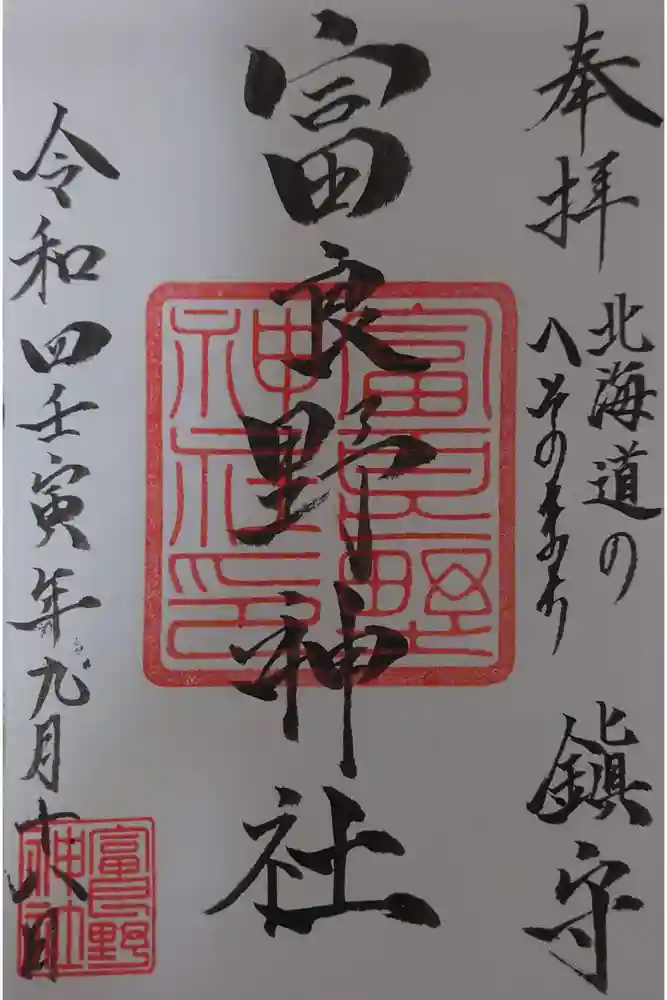 奉拝
北海道の
へその
鎮守
富良野神社
富良野神社印
令和四壬寅年九月十八日
富良野神社